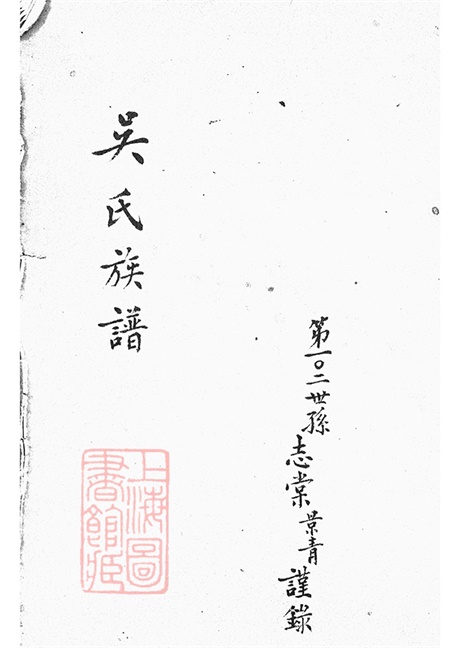 第一〇二世孫志棠景青謹錄
吳氏族譜
上海圖書館藏